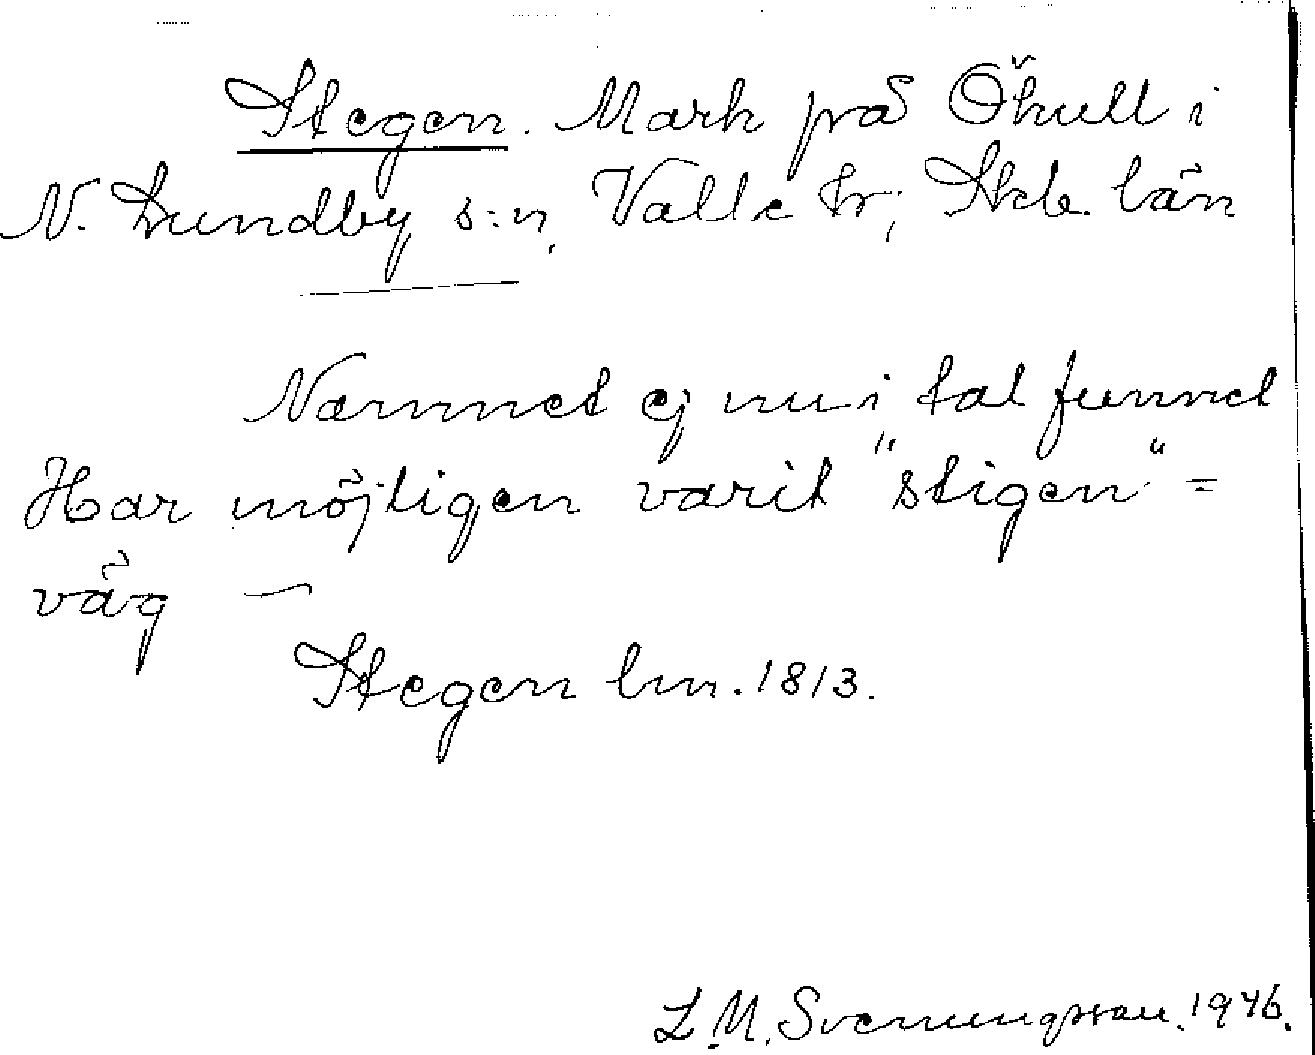 Stegen. Mark på Ökull i
N. Lundby s:n, Valle hr; Skb. län
Namnet ej nu i tal funnet
Har möjligen varit "stigen" =
väg —
Stegen lm. 1813.
L. M. Svenungsson. 1946.